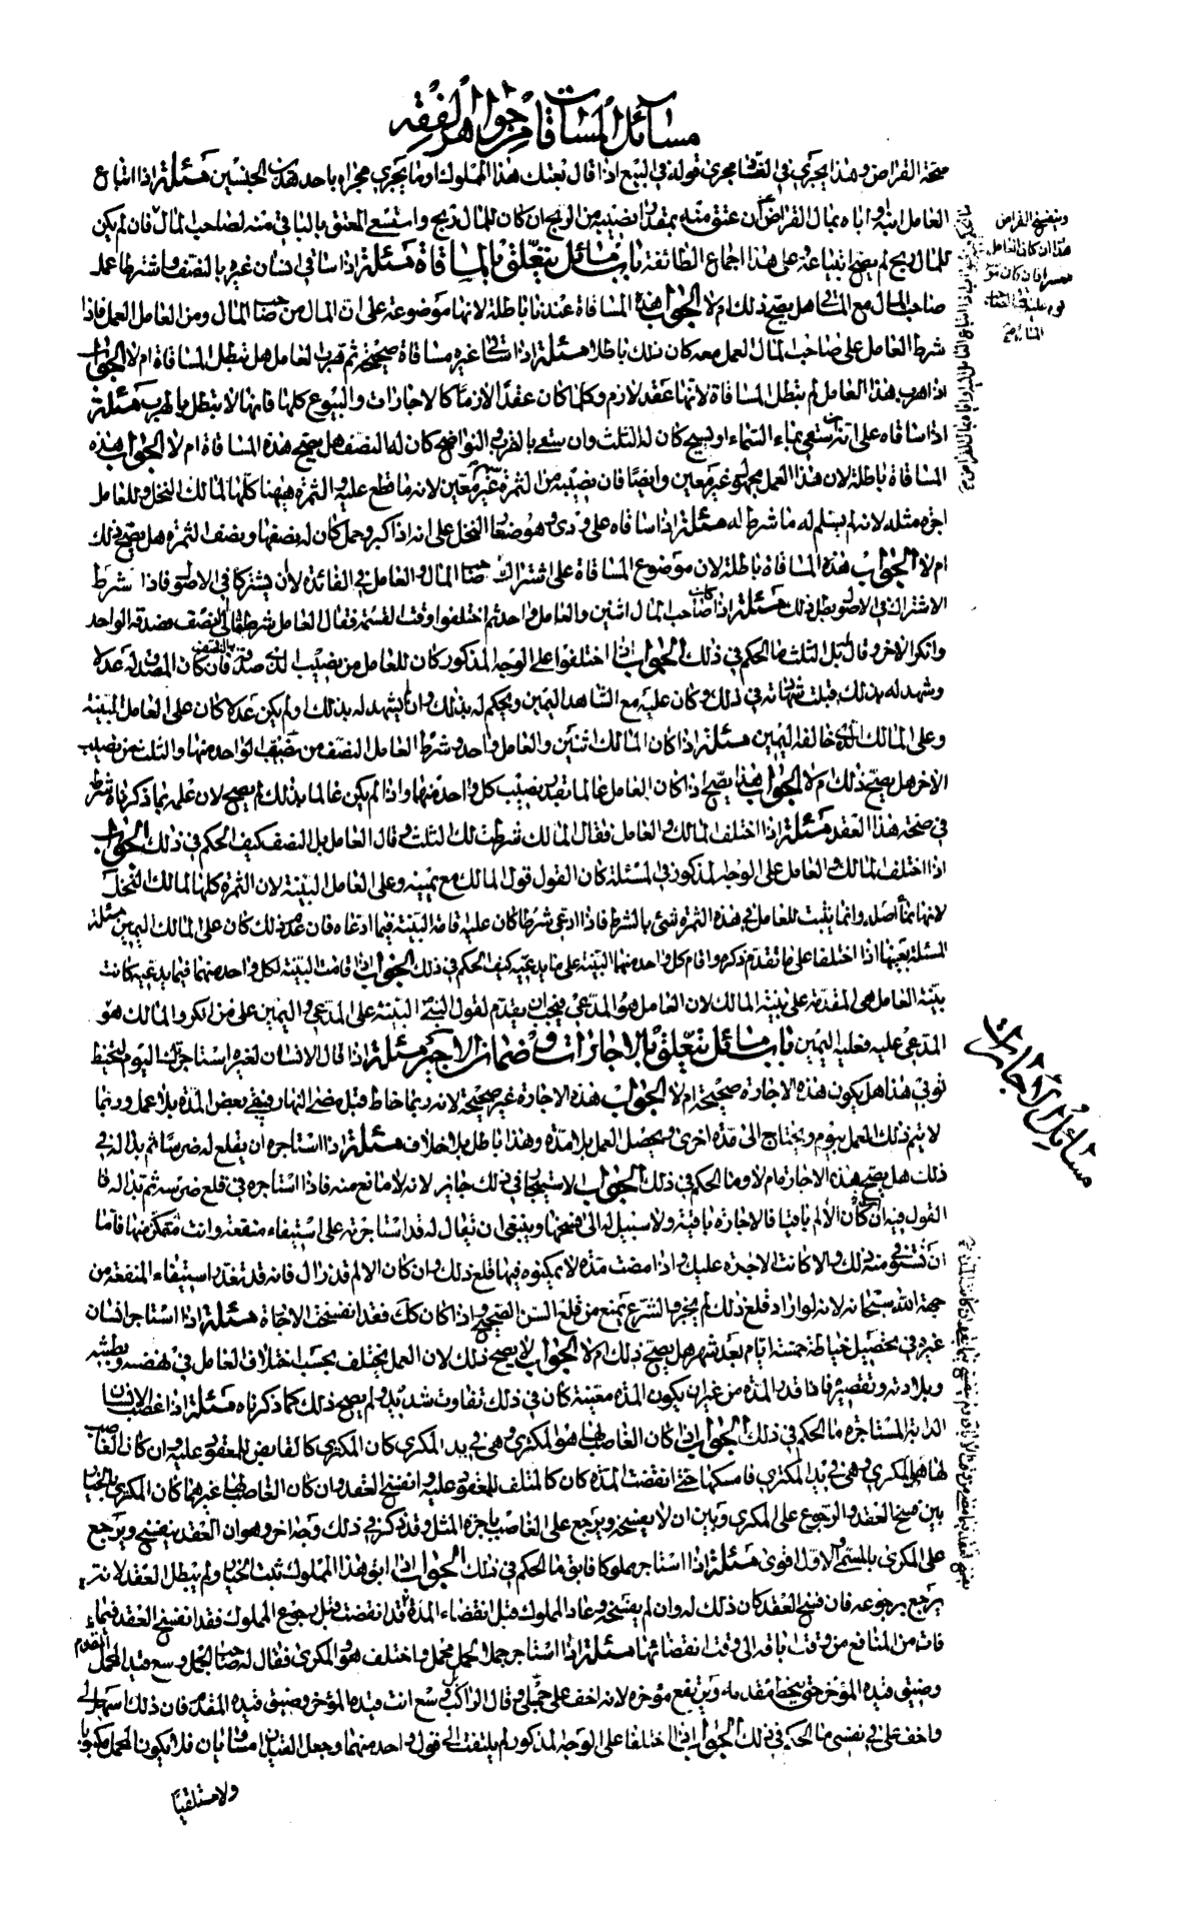 مسائل المساقات من جواهر الفقه
صحة القراض وهذا يجري في الفساد مجرى قوله في البيع اذا قال بعتك هذا المملوك او ما يجري مجراه باحد هذين الجنسين مسئلة اذا ابتاع
العامل ابنه او اباه بمال القراض عتق منه بمقدار نصيبه من الربح ان كان للمال ربح واستسعى المعتق بالباقي منه لصاحب المال فان لم يكن
للمال ربح لم يصح ابتياعه على هذا اجماع الطائفة باب مسائل يتعلق بالمساقاة مسئلة اذا ساقى انسان غيره بالنصف واشترط ما عمل
صاحب المال مع المساقى هل يصح ذلك ام لا الجواب هذه المساقاة عندنا باطلة لانها موضوعة على ان المال من صاحب المال ومن العامل العمل فاذا
شرط العامل على صاحب المال العمل معه كان ذلك باطلا مسئلة اذا ساقى غيره مساقاة صحيحة ثم هرب العامل هل تبطل المساقاة ام لا الجواب
اذا هرب هذا العامل لم تبطل المساقاة لانها عقد لازم وكلما كان عقدا لازما كالاجارات والبيوع كلها فانها لا تبطل بالهرب مسئلة
اذا ساقاه على انه ان سقى بماء السماء او سيح كان له الثلث وان سقى بالغرب والنواضح كان له النصف هل يصح هذه المساقاة ام لا الجواب هذه
المساقاة باطلة لان هذا العمل مجهول غير معين وايضا فان نصيبه من الثمرة غير معين لانه ما قطع عليه والثمرة هيهنا كلها لمالك النخل وللعامل
اجرة مثله لانه لم يسلم له ما شرط له مسئلة اذا ساقاه على ودي وهو صغار النخل على انه اذا كبر وحمل كان له نصفها ونصف الثمرة هل يصح ذلك
ام لا الجواب هذه المساقاة باطلة لان موضوع المساقاة على اشتراك صاحب المال والعامل في الفائدة لا ان يشتركا في الاصول فاذا شرط
الاشتراك في الاصول بطل ذلك مسئلة اذا كان صاحب المال اثنين والعامل واحد ثم اختلفوا وقت القسمة فقال العامل شرطتما لي النصف فصدقه الواحد
وانكر الاخر وقال بل الثلث ما الحكم في ذلك الجواب اذا اختلفوا على الوجه المذكور كان للعامل من نصيب الذي صدقه بالنصف فان كان المصدق له عدلا
وشهد له بذلك قبلت شهادته في ذلك وكان عليه مع الشاهد اليمين ويحكم له بذلك وان لم يشهد له بذلك او لم يكن عدلا كان على العامل البينة
وعلى المالك الذي خالفه اليمين مسئلة اذا كان المالك اثنين والعامل واحد وشرط العامل النصف من نصيب الواحد منهما والثلث من نصيب
الاخر هل يصح ذلك ام لا الجواب هذا يصح اذا كان العامل عالما بقدر نصيب كل واحد منهما واذا لم يكن عالما بذلك لم يصح لان علمه بما ذكرناه شرط
في صحة هذا العقد مسئلة اذا اختلف المالك والعامل فقال المالك شرطت لك الثلث وقال العامل بل النصف كيف الحكم في ذلك الجواب
اذا اختلف المالك والعامل على الوجه المذكور في المسئلة كان القول قول المالك مع يمينه وعلى العامل البينة لان الثمرة كلها لمالك النخل
لانها نماء اصله وانما يثبت للعامل في هذه الثمرة شئ بالشرط فاذا ادعى شرطا كان عليه اقامة البينة فيما ادعاه فان عدم ذلك كان على المالك اليمين مسئلة
المسئلة بعينها اذا اختلفا على ما تقدم ذكره واقام كل واحد منهما البينة على ما يدعيه كيف الحكم في ذلك الجواب اذا قامت البينة لكل واحد منهما فيما يدعيه كانت
بينة العامل هي المقدمة على بينة المالك لان العامل هو المدعي فيجب ان يقدم لقول النبي البينة على المدعي واليمين على من انكر والمالك هو
المدعى عليه فعليه اليمين باب مسائل يتعلق بالاجارات وضمان الاجير مسئلة اذا قال الانسان لغيره استاجرتك اليوم لتخيط
ثوبي هذا هل يكون هذه الاجارة صحيحة ام لا الجواب هذه الاجارة غير صحيحة لانه ربما خاط قبل مضي النهار ويبقى بعض المدة بلا عمل وربما
لا يتم ذلك العمل بيوم ويحتاج الى مدة اخرى ويحصل العمل بلا مدة وهذا باطل بلا خلاف مسئلة اذا استاجره ان يقلع له ضرسا ثم بدا له في
ذلك هل يصح هذه الاجارة ام لا وما الحكم في ذلك الجواب الاستيجار في ذلك جايز لانه لا مانع منه فاذا استاجره في قلع ضرسه ثم بدا له فا
القول فيه ان كان الالم باقيا فالاجارة باقية ولا سبيل له الى فسخها وينبغي ان يقال له قد استاجرته على استيفاء منفعة وانت متمكن منها فاما
ان تستوفي منه ذلك والا كانت الاجرة عليك واذا مضت مدة لا يمكنه فيها قلع ذلك وان كان الالم قد زال فانه قد تعذر استيفاء المنفعة من
جهة الله سبحانه لانه لو اراد قلع ذلك لم يجز والشرع يمنع من قلع السن الصحيح واذا كان كك فقد انفسخت الاجارة مسئلة اذا استاجر انسان
غيره في تحصيل خياطة خمسة ايام بعد شهر هل يصح ذلك ام لا الجواب لا يصح ذلك لان العمل يختلف بحسب اختلاف العامل في نهضته وبطشه
وبلادته وتقصيره فاذا قدر المدة من غير ان يكون المدة معينة كان في ذلك تفاوت شديد ولم يصح ذلك كما ذكرناه مسئلة اذا غصب الانسان
الدابة المستاجرة ما الحكم في ذلك الجواب اذا كان الغاصب لها هو المكتري وهي في يد المكري كان المكتري كالقابض للمعقود عليه وان كان الغاصب
لها هو المكري وهي في يد المكتري فامسكها حتى انقضت المدة كان كالمتلف للمعقود عليه وانفسخ العقد وان كان الغاصب لها غيرهما كان المكتري بالخيار
بين فسخ العقد والرجوع على المكري وبين ان لا يفسخه ويرجع على الغاصب باجرة المثل وقد ذكر في ذلك وجه اخر وهو ان العقد ينفسخ ويرجع
على المكري بالمسمى والاول اقوى مسئلة اذا استاجر مملوكا فابق ما الحكم في ذلك الجواب اذا ابق هذا المملوك ثبت الخيار ولم يبطل العقد لانه
يرجع برجوعه فان فسخ العقد كان ذلك له وان لم يفسخه وعاد المملوك قبل انقضاء المدة قد انقضت قبل رجوع المملوك فقد انفسخ العقد فيما
فات من المنافع من وقت اباقه الى وقت انقضائها مسئلة اذا استاجر جملا لحمل محمل واختلف هو والمكري فقال له صاحب الجمل وسع قيد المحمل المقدم
وضيق قيده المؤخر حتى ينحط مقدمه ويرتفع مؤخره لانه اخف على جملي وقال الراكب وسع انت قيده المؤخر وضيق قيده المقدم فان ذلك اسهل لي
واخف علي في نفسي ما الحكم في ذلك الجواب اذا اختلفا على الوجه المذكور لم يلتفت الى قول واحد منهما وجعل القيدان متساويان فلا يكون المحمل مكبوبا
ولا مستلقيا
وينفسخ القراض
هذا ان كان العامل
معسرا فان كان موسرا
مسائل الاجارات